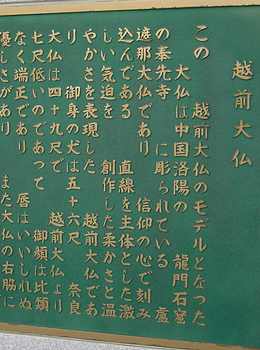 越前大仏
この 越前大仏のモデルとなった
大仏は中国洛陽の 龍門石窟
の奉先寺 に彫られている 盧
遮那大仏であり 信仰の心で刻み
込んである 直線を主体とした激
しい気迫を 創作した柔かさと温
やかさを表現した 越前大仏であ
り 御身の丈は五十六尺 奈良
大仏は四十九尺で 越前大仏より
七尺低いのであって 御顔は比類
なく端正であり 唇はいいしれぬ
優しさがあり また大仏の右脇に